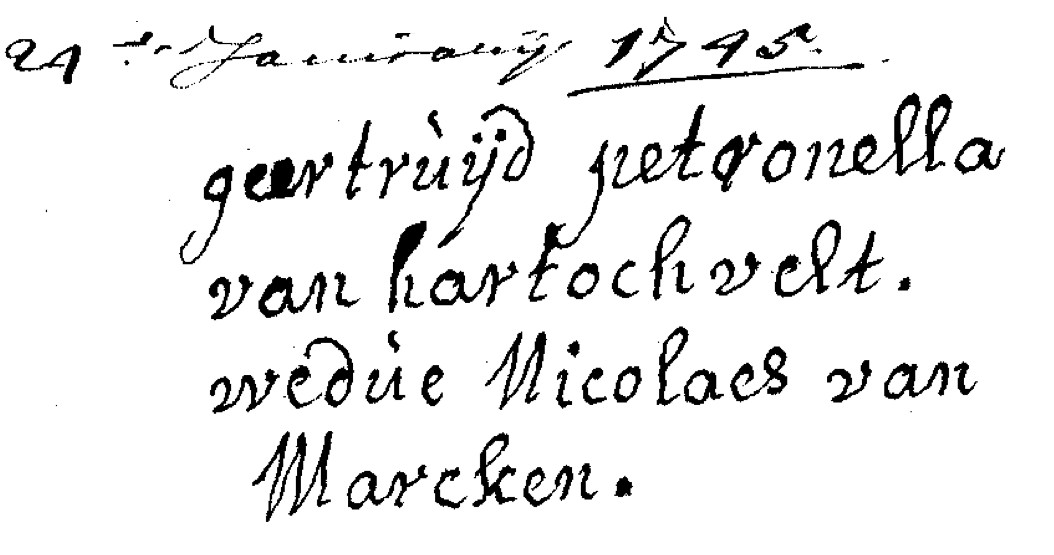 24 Januarÿ 1745.
geertruÿd petronella
van hartochvelt.
wedue Nicolaes van
Marcken.